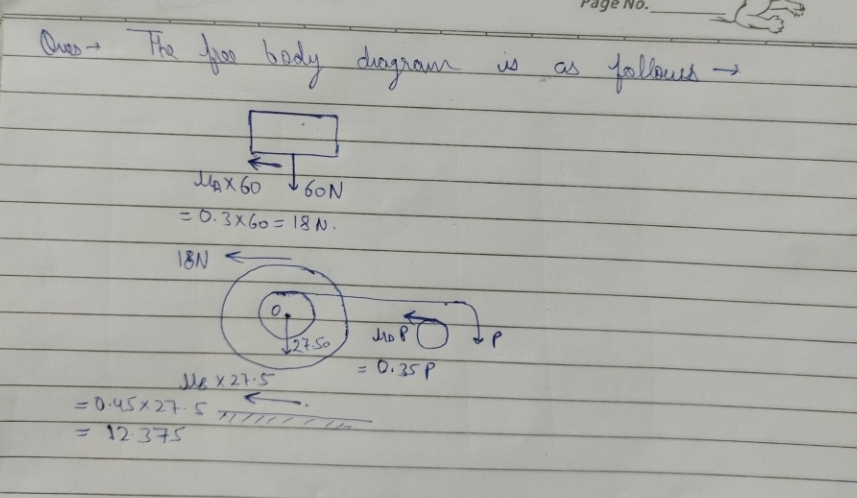 Page No.
Ques → The free body diagram is as follows →
μA×60
60N
= 0.3×60 = 18N.
18N
O
27.50
μDP
P
= 0.35P
μB × 27.5
= 0.45×27.5
= 12.375